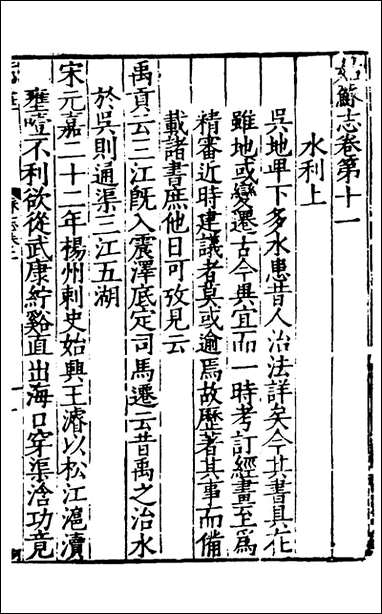 姑蘇志卷第十一
水利上
吳地𤰞下多水患昔人治法詳矣今其書具在
雖地或變遷古今異宜而一時考訂經畫至爲
精審近時建議者莫或逾焉故歷著其事而備
載諸書庶他日可攷見云
禹貢云三江旣入震澤底定司馬遷云昔禹之治水
於吳則通渠三江五湖
宋元嘉二十二年楊州剌史始興王濬以松江滬瀆
壅噎不利欲從武康紵谿直出海口穿渠浛功竟